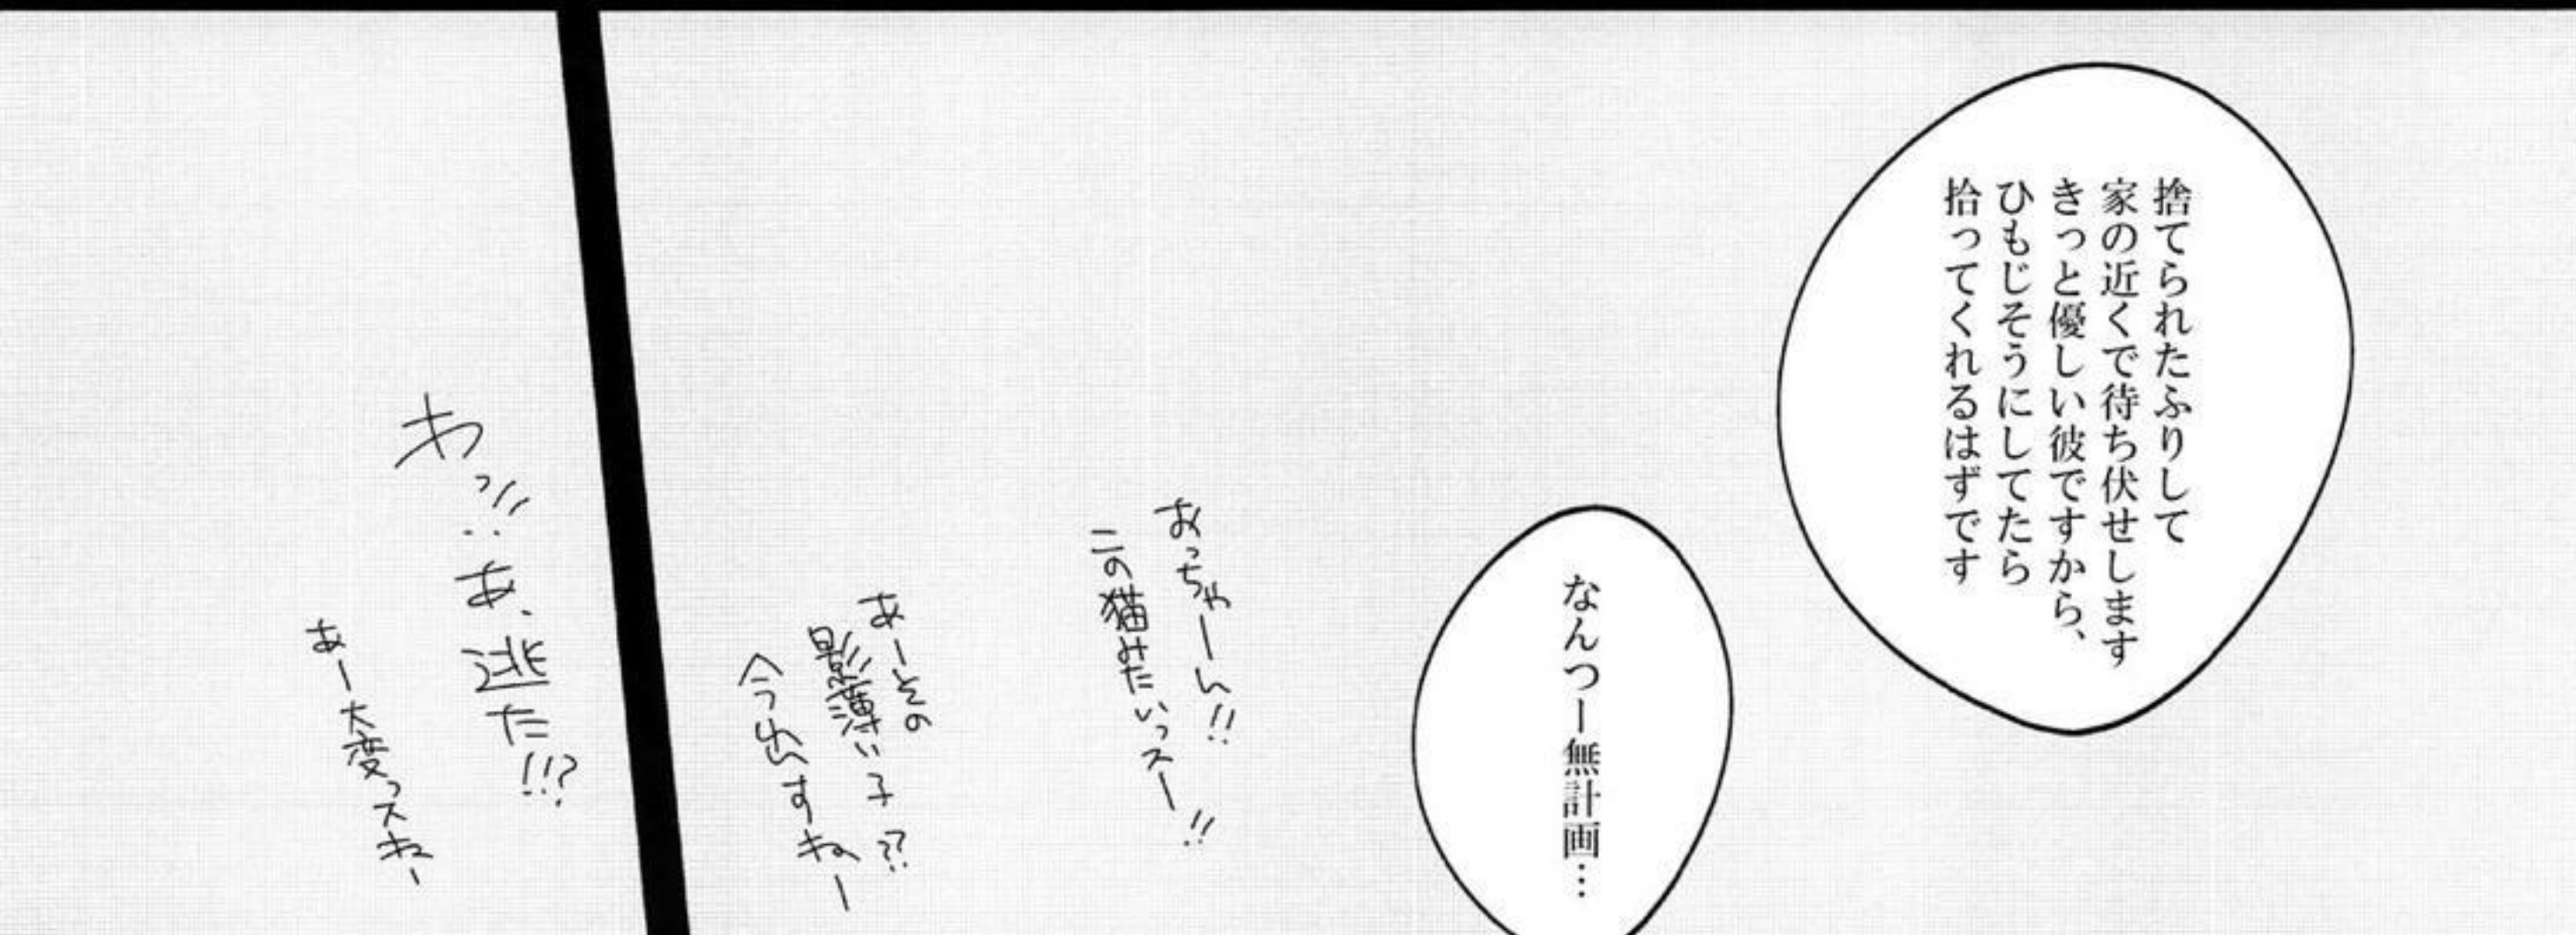 捨てられたふりして
家の近くで待ち伏せします
きっと優しい彼ですから、
ひもじそうにしてたら
拾ってくれるはずです
なんつー無計画…
おっちゃーん!!
この猫みたいっスー!!
あーその
影薄い子??
今出すねー
わっ!! あ、逃た!!?
あー大変っスねー